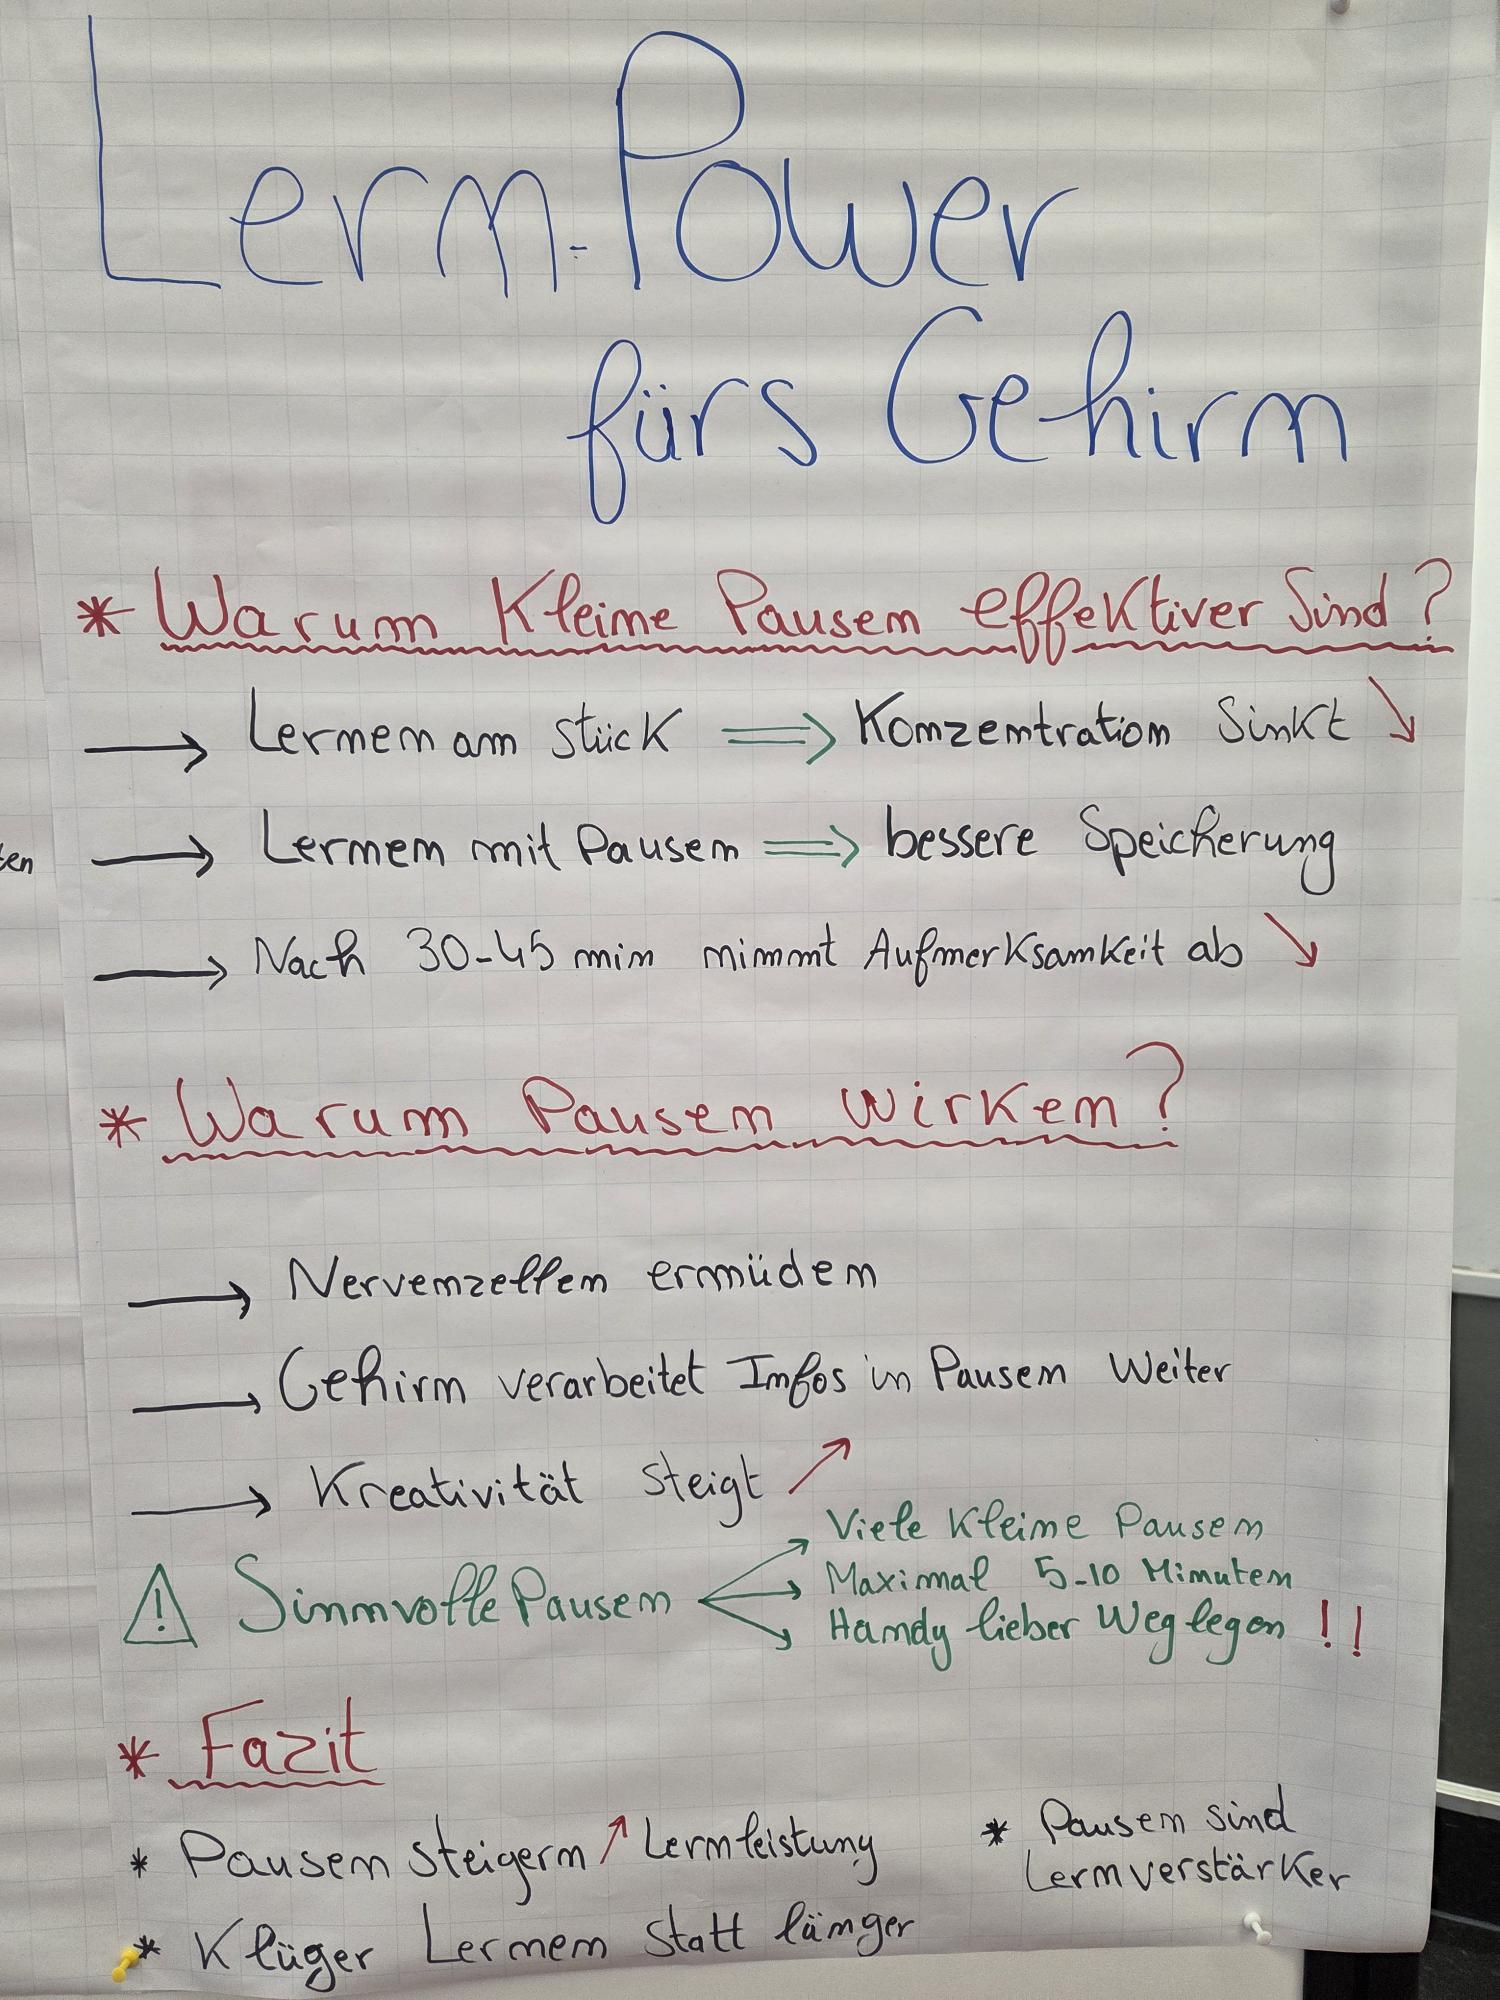 Lern-Power
fürs Gehirn
* Warum Kleine Pausen effektiver Sind?
→ Lernen am stück ⇒ Konzentration Sinkt ↘
→ Lernen mit Pausen ⇒ bessere Speicherung
→ Nach 30-45 min nimmt Aufmerksamkeit ab ↘
* Warum Pausen wirken?
→ Nervenzellen ermüden
→ Gehirn verarbeitet Infos in Pausen Weiter
→ Kreativität steigt ↗
⚠ Sinnvolle Pausen
→ Viele Kleine Pausen
→ Maximal 5-10 Minuten
→ Handy lieber Weg legen !!
* Fazit
* Pausen steigern ↗ Lernleistung
* Klüger Lernen statt länger
* Pausen sind
Lernverstärker